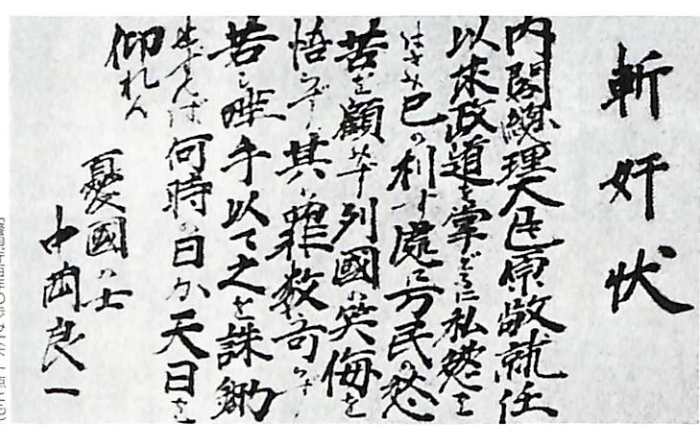 斬奸状
内閣總理大臣原敬就任
以来政道を掌どるに私慾を
はさみ己の利す處に万民の愁
苦を顧みず列國の笑侮を
悟らず其の罪数可からず
若し唾手以て之を誅鋤
せずんば何時の日か天日を
仰れん
憂國の士
中岡良一